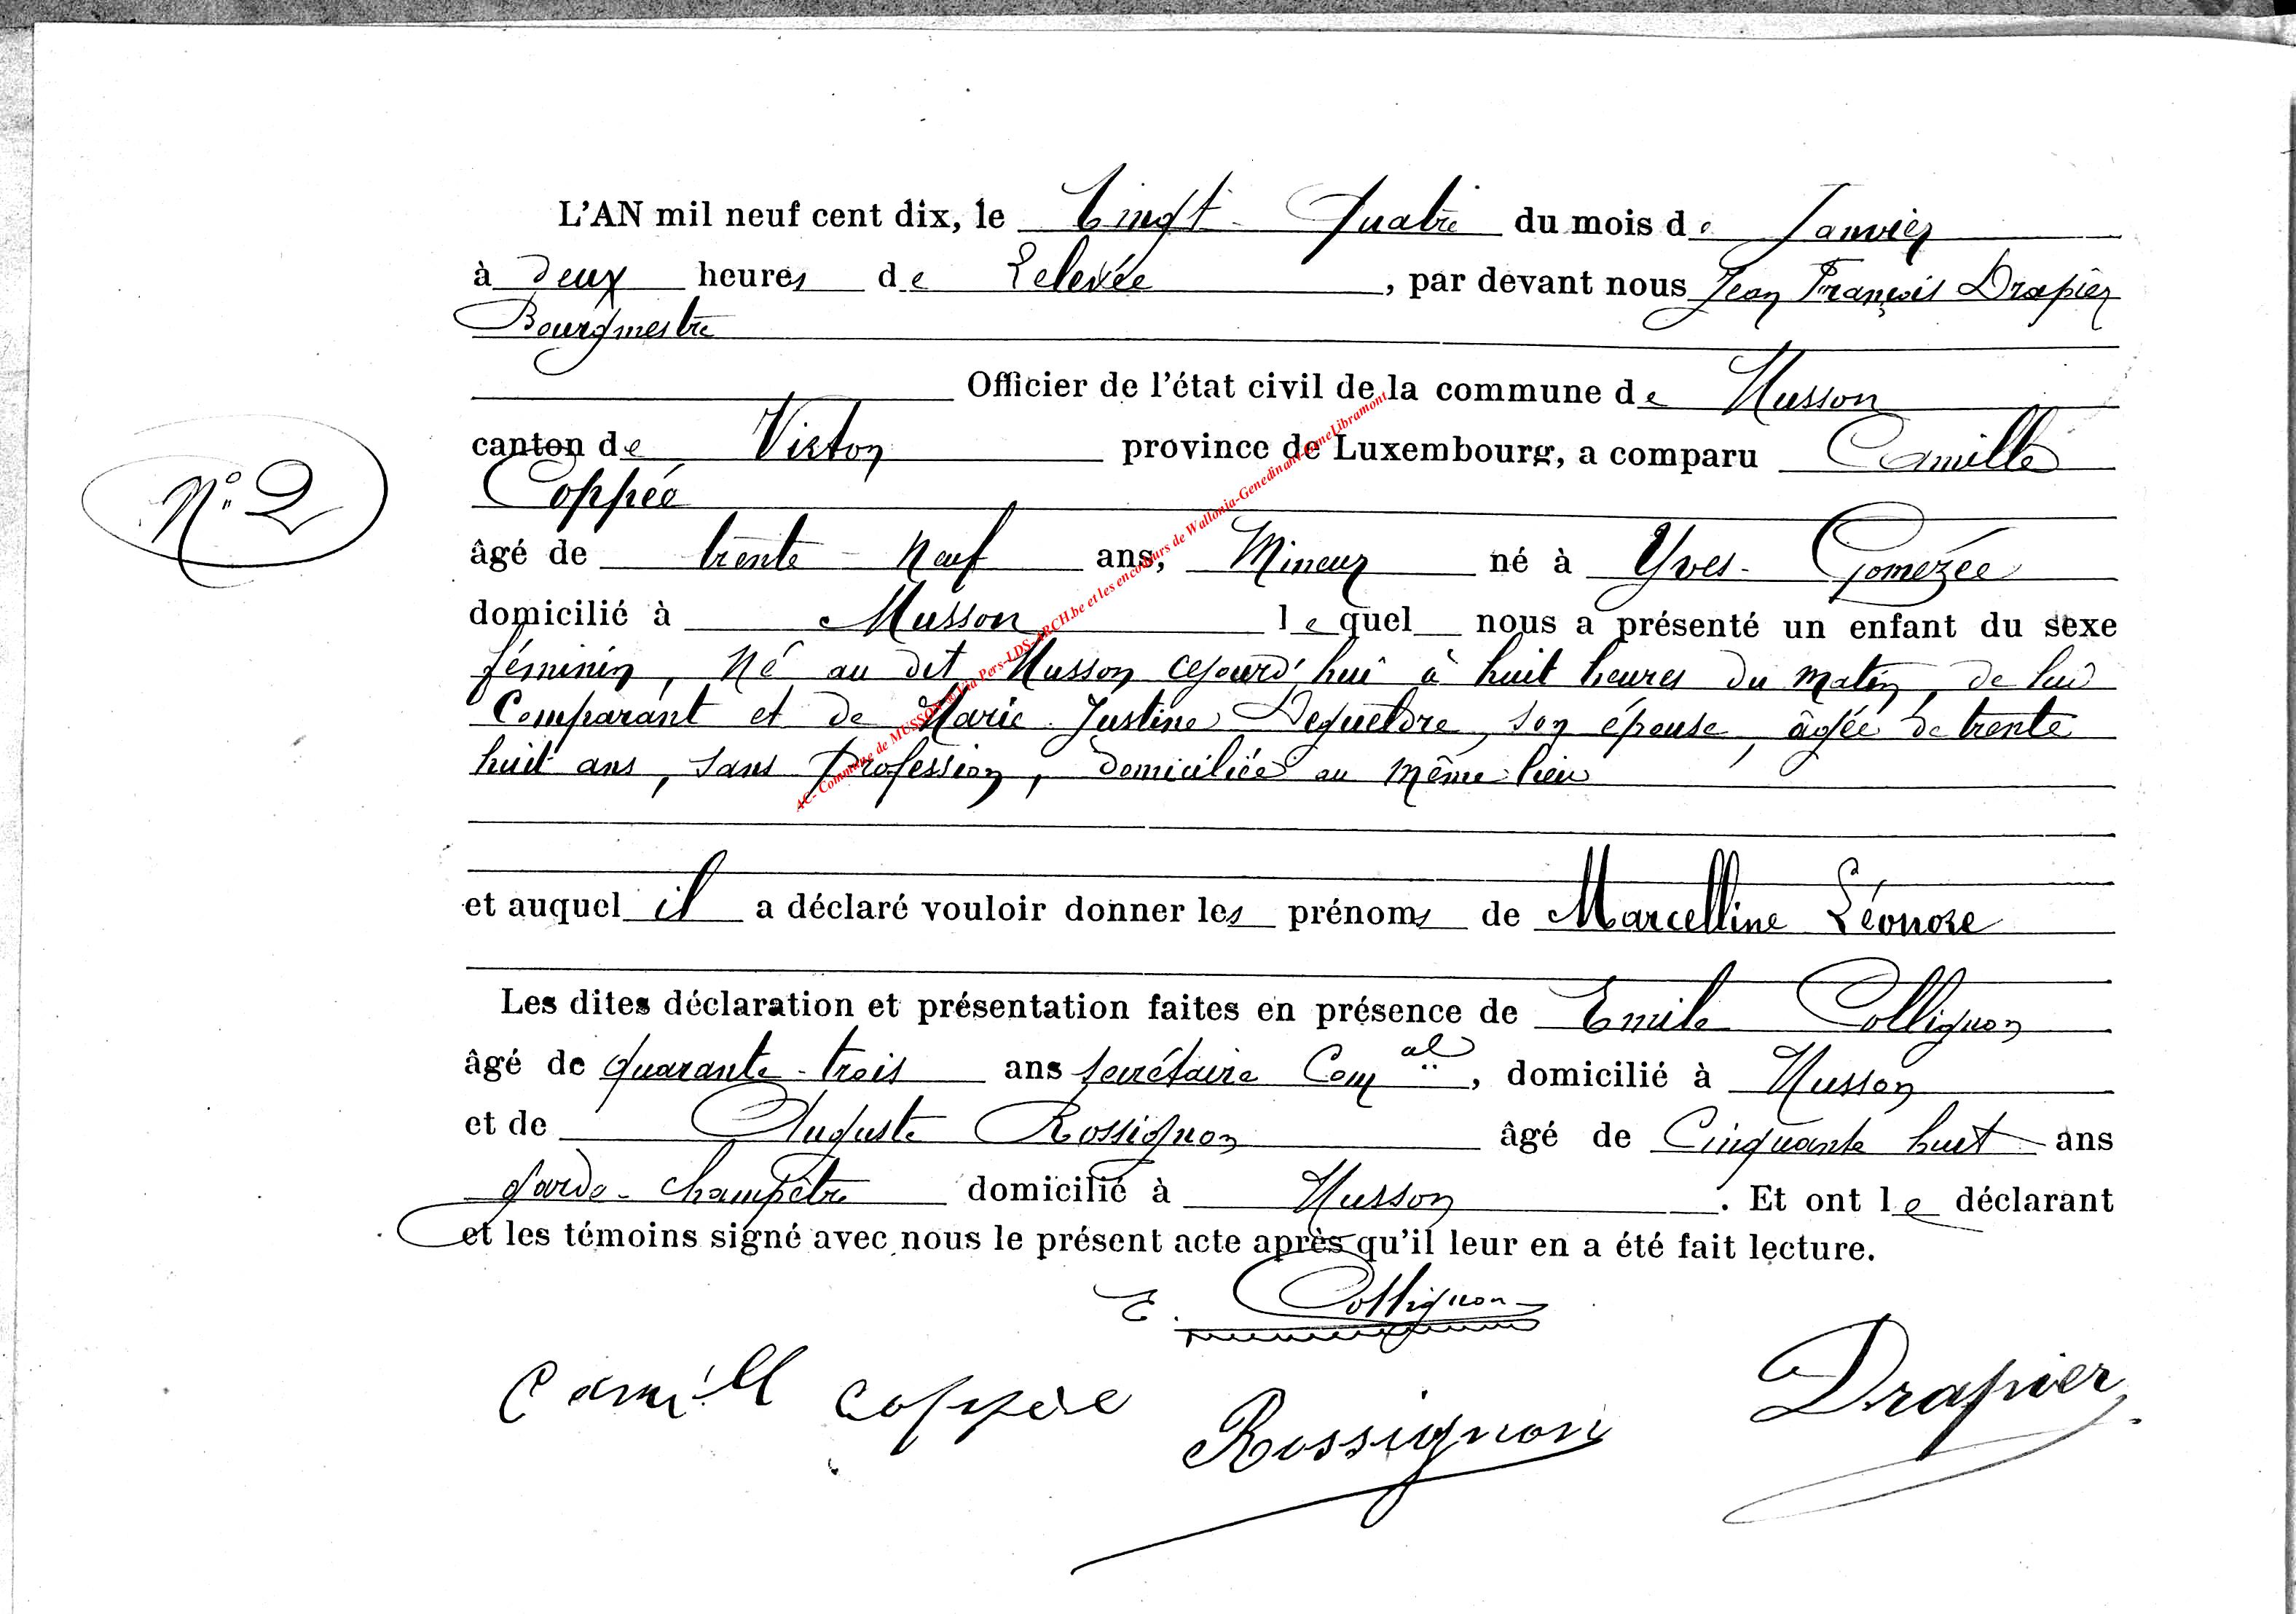 L'AN mil neuf cent dix, le Vingt-Quatre du mois de Janvier
à deux heures de Relevée, par devant nous Jean François Drapier
Bourgmestre
Officier de l'état civil de la commune de Musson
canton de Virton province de Luxembourg, a comparu Camille
Coppée
N° 2
âgé de trente-neuf ans, Mineur né à Yves-Gomezée
domicilié à Musson lequel nous a présenté un enfant du sexe
féminin, né au dit Musson cejourd'hui à huit heures du matin, de lui
Comparant et de Marie Justine Dequeldre, son épouse, âgée de trente
huit ans, sans profession, domiciliée au même lieu
et auquel il a déclaré vouloir donner les prénoms de Marcelline Léonore
Les dites déclaration et présentation faites en présence de Emile Collignon
âgé de quarante-trois ans secrétaire Comal, domicilié à Musson
et de Auguste Rossignon âgé de Cinquante huit ans
garde-champêtre domicilié à Musson. Et ont le déclarant
et les témoins signé avec nous le présent acte après qu'il leur en a été fait lecture.
E. Collignon
Camill Coppée Rossignon Drapier
AC- Commune de MUSSON © Via Pers-LDS-ARCH.be et les encodeurs de Wallonia-Genedinant-GeneLibramont